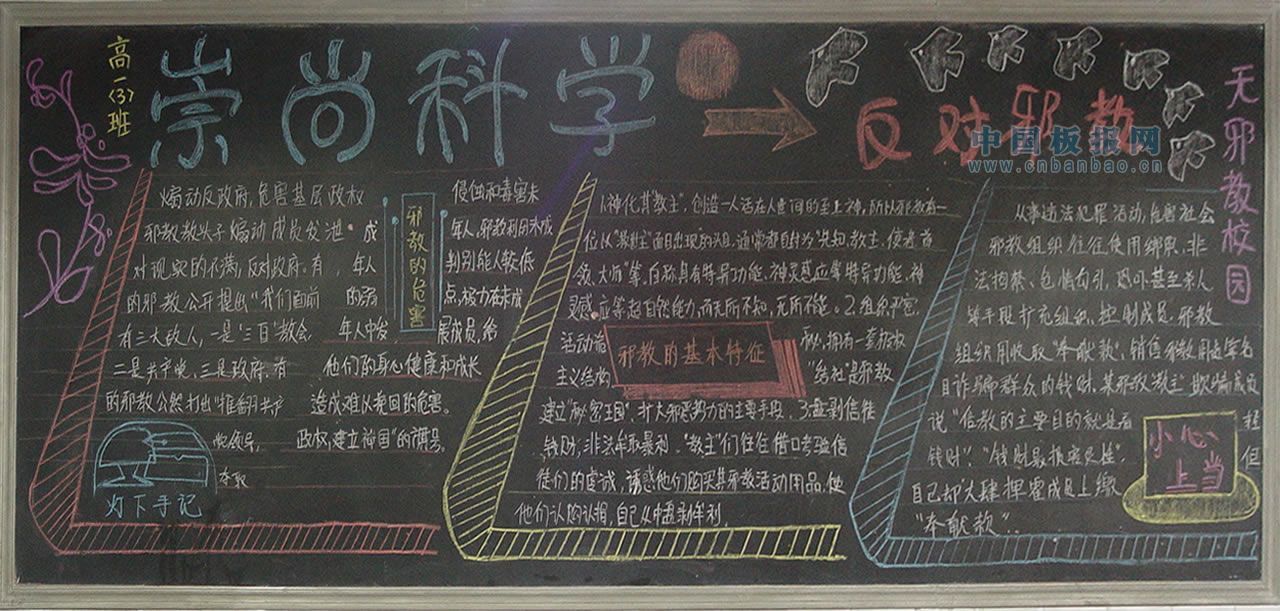 高一<3>班
崇尚科学
反对邪教
无邪教校园
中国板报网
www.cnbanbao.cn
煽动反政府,危害基层政权
邪教教头子煽动成员发泄
对现实的不满,反对政府。有
的邪教公开提出"我们面前
有三大敌人,一是"三自"教会
二是共产党,三是政府。有
的邪教公然打出"推翻共产
党领导,
夺取
政权,建立神国"的旗号。
灯下手记
邪教的危害
侵蚀和毒害未
成年人。邪教利用未成
年人判别能人较低
的弱点,极力在未成
年人中发展成员,给
他们的身心健康和成长
造成难以挽回的危害。
1.神化其"教主"。创造一人活在人世间的至上神,所以邪教有一
位以"教主"面目出现的头目,通常都自封为"先知、教主、使者首
领、大师"等,自称具有特异功能、神灵感应等特异功能、神
灵感应等超自然能力,而无所不知,无所不能。2.组织严密。
邪教的基本特征
活动诡秘,拥有一套
主义结构
"结社"是邪教
建立"秘密王国"、扩大邪恶势力的主要手段。3.盘剥信徒
钱财,非法牟取暴利。"教主"们往往借口考验信
徒们的虔诚,诱惑他们购买其邪教活动用品,使
他们认购认捐,自己从中盘剥牟利。
从事违法犯罪活动,危害社会
邪教组织往往使用绑架、非
法拘禁、色情勾引、恐吓甚至杀人
等手段扩充组织、控制成员。邪教
组织用收取"奉献款"、销售邪教用品等名
目诈骗群众的钱财。某邪教"教主"欺骗成员
说"信教的主要目的就是看轻
钱财"、"钱财最损害灵性"。但
自己却大肆挥霍成员上缴
"奉献款"。
小心
上当